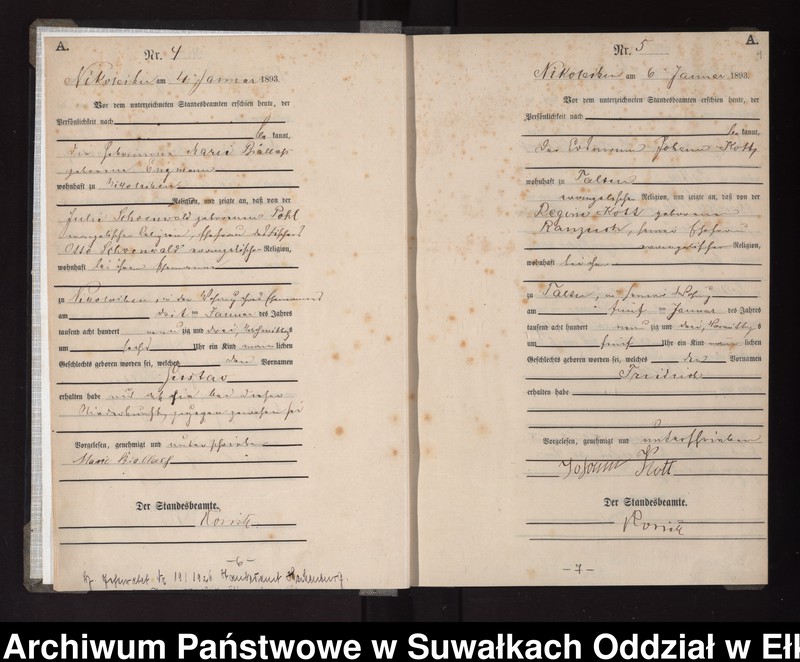 A.
Nr. 4
Nikolaiken am 4 Januar 1893.
Vor dem unterzeichneten Standesbeamten erschien heute, der
Persönlichkeit nach
be kannt,
die Hebamme Marie Biallas
geborene Engmann
wohnhaft zu Nikolaiken
Religion, und zeigte an, daß von der
Julie Schoenwald geborenen Pohl
evangelischer Religion, Ehefrau des
Otto Schoenwald evangelischer Religion,
wohnhaft bei ihrem Ehemann
zu Nikolaiken, in der Wohnung ihres Ehemannes
am drit ten Januar des Jahres
tausend acht hundert neun zig und drei, Nachmittags
um sechs Uhr ein Kind männ lichen
Geschlechts geboren worden sei, welches den Vornamen
Gustav
erhalten habe und daß sie bei dieser
Niederkunft zugegen gewesen sei
Vorgelesen, genehmigt und unterschrieben
Marie Biallas
Der Standesbeamte.
-6-
19/1926 Standesamt
A.
Nr. 5
Nikolaiken am 6 Januar 1893.
Vor dem unterzeichneten Standesbeamten erschien heute, der
Persönlichkeit nach
be kannt,
der Johann Kott
wohnhaft zu Talten
evangelischer Religion, und zeigte an, daß von der
Regine Kott geborenen
seiner Ehefrau
evangelischer Religion,
wohnhaft bei ihm
zu Talten, in seiner Wohnung
am fünf ten Januar des Jahres
tausend acht hundert neun zig und drei, Vormittags
um fünf Uhr ein Kind männ lichen
Geschlechts geboren worden sei, welches den Vornamen
Fridrich
erhalten habe
Vorgelesen, genehmigt und unterschrieben
Johann Kott
Der Standesbeamte.
-7-
Archiwum Państwowe w Suwałkach Oddział w Ełk